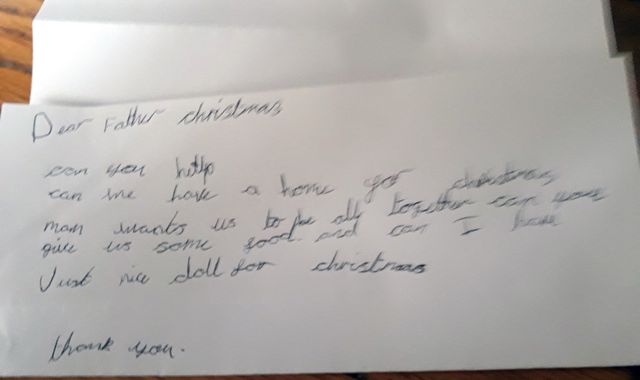 Dear Father christmas
can you help
can we have a home for christmas
mam wants us to be all together can you
give us some food and can I have
Just nice doll for christmas
thank you.